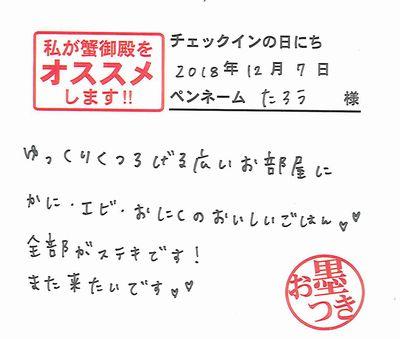 私が蟹御殿を
オススメ
します!!
チェックインの日にち
2018年12月7日
ペンネーム たろう 様
ゆっくりくつろげる広いお部屋に
かに・エビ・おにくのおいしいごはん♡♡
全部がステキです!
また来たいです♡♡
お墨つき